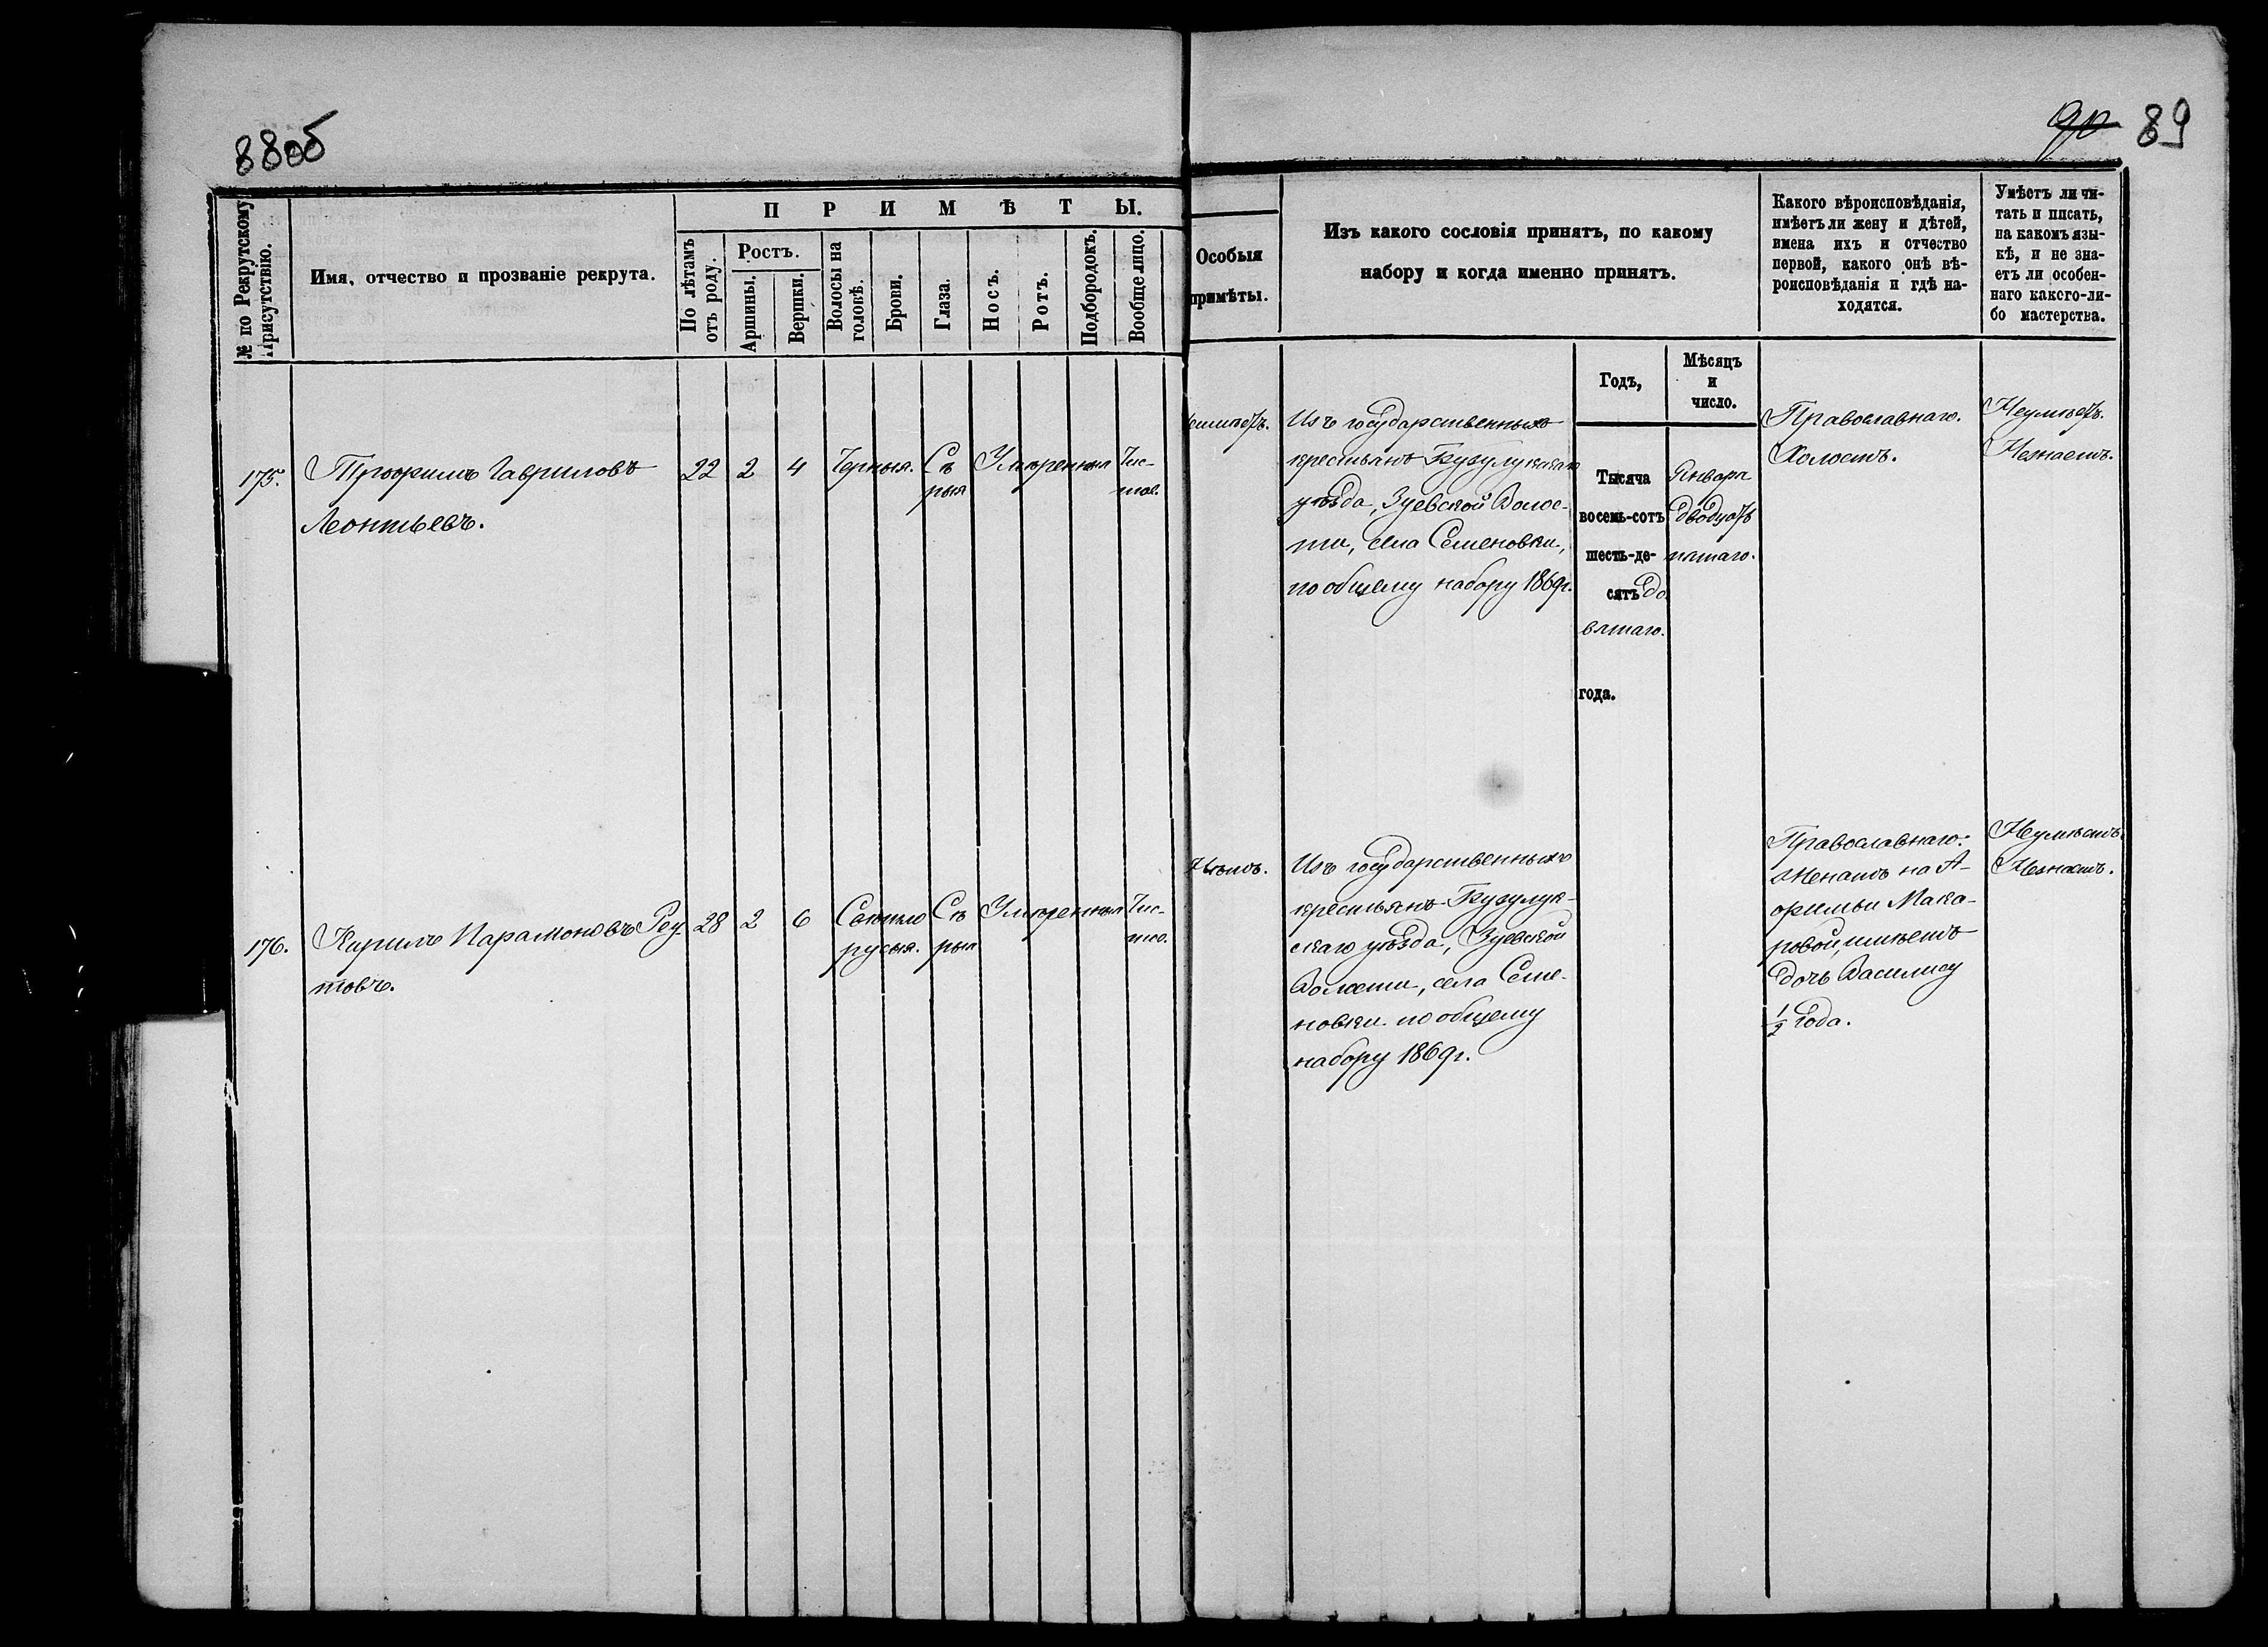 88об
90 89
№ по Рекрутскому
Присутствію.
Имя, отчество и прозваніе рекрута.
ПРИМѢТЫ.
По лѣтамъ
отъ роду.
Ростъ.
Аршины.
Вершки.
Волосы на
головѣ.
Брови.
Глаза.
Носъ.
Ротъ.
Подбородокъ.
Вообще лицо.
Особыя
примѣты.
Изъ какого сословія принятъ, по какому
набору и когда именно принятъ.
Какого вѣроисповѣданія,
имѣетъ ли жену и дѣтей,
имена ихъ и отчество
первой, какого онѣ вѣ-
роисповѣданія и гдѣ на-
ходятся.
Умѣетъ ли чи-
тать и писать,
на какомъ язы-
кѣ, и не зна-
етъ ли особен-
наго какого-ли-
бо мастерства.
Годъ,
Мѣсяцъ
и
число.
175.
Трофимъ Гавриловъ
Леонтьевъ.
22 2 4
Черныя.
Сѣ
рыя
Умѣренныя
Чис-
тое.
Изъ государственныхъ
крестьянъ Бузулукскаго
уѣзда, Зуевской Волос-
ти, села Семеновки,
по общему набору 1869г.
Тысяча
восемь-сотъ
шесть-де-
сятъ де
вятаго.
года.
Января
двадцать
пятаго.
Православнаго.
Холостъ.
Неумѣетъ.
Незнаетъ.
176.
Кирилъ Парамоновъ Реу-
товъ.
28 2 6
Свѣтло
русыя.
Сѣ
рыя
Умѣренныя
Чис-
тое.
Нѣтъ.
Изъ государственныхъ
крестьянъ Бузулук-
скаго уѣзда, Зуевской
Волости, села Семе-
новки по общему
набору 1869г.
Православнаго.
Женатъ на А-
фимьи Мака-
ровой, имѣетъ
дочь Василису
½ года.
Неумѣетъ.
Незнаетъ.